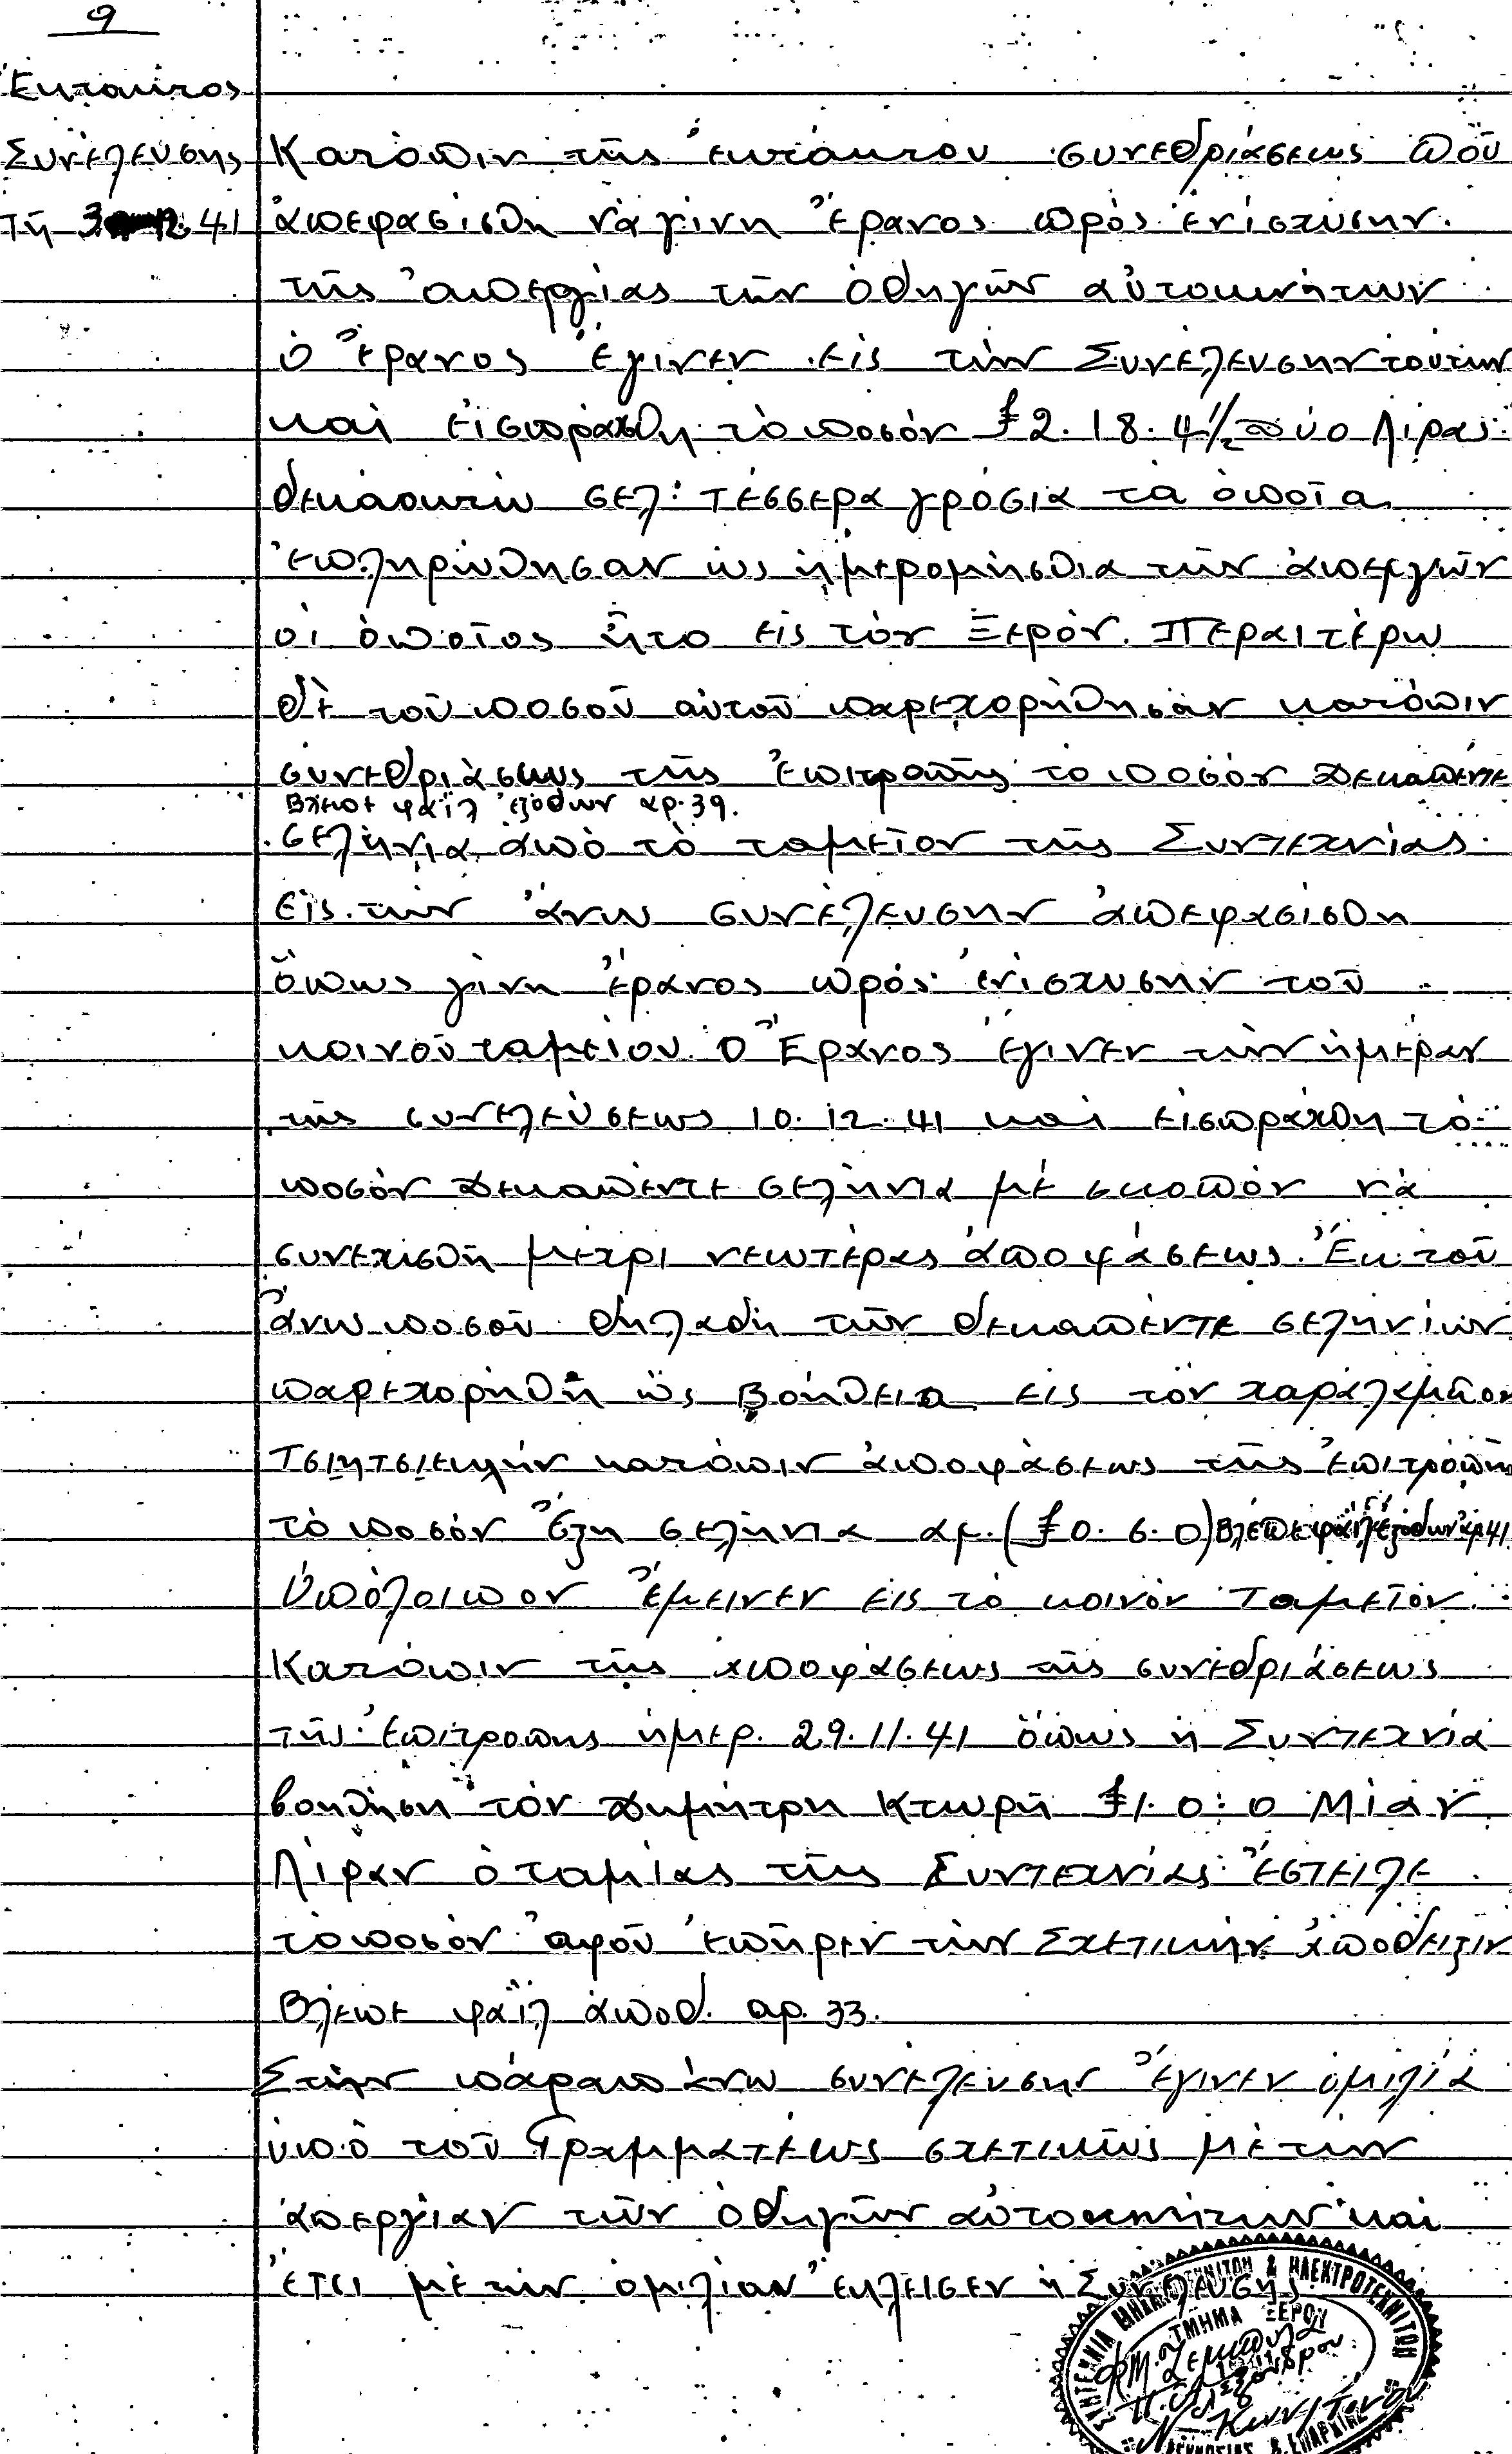 9
Ἐκτακτος
Συνέλευσης
τῇ 3 12. 41
Κατόπιν τῆς ἐκτάκτου συνεδριάσεως ποῦ
ἀπεφασίσθη νὰ γίνῃ Ἔρανος πρὸς ἐνίσχυσην
τῆς ἀπεργίας τῶν ὁδηγῶν αὐτοκινήτων
ὁ Ἔρανος ἔγινεν εἰς τὴν Συνέλευσην τούτην
καὶ εἰσπράχθη τὸ ποσὸν £2. 18. 4 1/2 Δύο Λίρας
δεκαοκτὼ σελ: τέσσερα γρόσια τὰ ὁποῖα
ἐπληρώθησαν ὡς ἡμερομήσθια τῶν ἀπεργῶν
οἱ ὁποῖος ἦτο εἰς τὸν Ξερόν. Περαιτέρω
δὲ τοῦ ποσοῦ αὐτοῦ παρεχορήθησαν κατόπιν
συνεδριάσεως τῆς Ἐπιτροπῆς τὸ ποσὸν Δεκαπέντε
Βλέπε φάϊλ ἐξόδων αρ. 39.
σελήνια ἀπὸ τὸ ταμεῖον τῆς Συντεχνίας.
Εἰς τὴν ἄνω συνέλευσην ἀπεφασίσθη
ὅπως γίνῃ ἔρανος πρὸς ἐνίσχυσην τοῦ
κοινοῦ ταμείου. Ὁ Ἔρανος ἔγινεν τὴν ἡμέραν
τῆς συνελεύσεως 10. 12. 41 καὶ εἰσπράχθη τὸ
ποσὸν Δεκαπέντε σελήνια μὲ σκοπὸν νὰ
συνεχισθῇ μέχρι νεωτέρας ἀποφάσεως. Ἐκ τοῦ
ἄνω ποσοῦ δηλαδὴ τῶν δεκαπέντε σεληνίων
παρεχορήθη ὡς βοήθεια εἰς τὸν χαράλαμπον
Τσιητσιεκλὴν κατόπιν ἀποφάσεως τῆς ἐπιτροπῆς
τὸ ποσὸν Ἕξη σελήνια αρ. (£0. 6. 0) Βλέπε φάϊλ ἐξόδων αρ 41
Ὑπόλοιπον Ἔμεινεν εἰς τὸ κοινὸν Ταμεῖον.
Κατόπιν τῆς ἀποφάσεως τῆς συνεδριάσεως
τῆς ἐπιτροπῆς ἡμερ. 29. 11. 41 ὅπως ἡ Συντεχνία
βοηθήση τὸν Δημήτρη Κτωρῆ £1. 0: 0 Μίαν
Λίραν ὁ ταμίας τῆς Συντεχνίας ἔστειλε
τὸ ποσὸν ἀφοῦ ἐπῆρεν τὴν Σχετικὴν ἀπόδειξιν
Βλέπε φάϊλ ἀποδ. αρ. 33.
Στὴν παραπάνω συνέλευσην Ἔγινεν ὁμιλία
ὑπὸ τοῦ Γραμματέως σχετικῶς μὲ τὴν
ἀπεργίαν τῶν ὁδηγῶν αὐτοκινήτων καὶ
ἔτσι μὲ τὴν ὁμιλίαν ἔκλεισεν ἡ Συνέλευσης.
& ΗΛΕΚΤΡΟΤΕΧΝΙΤΩΝ
ΤΜΗΜΑ ΞΕΡΟΥ